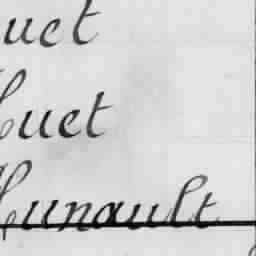 uet
Huet
Hunault